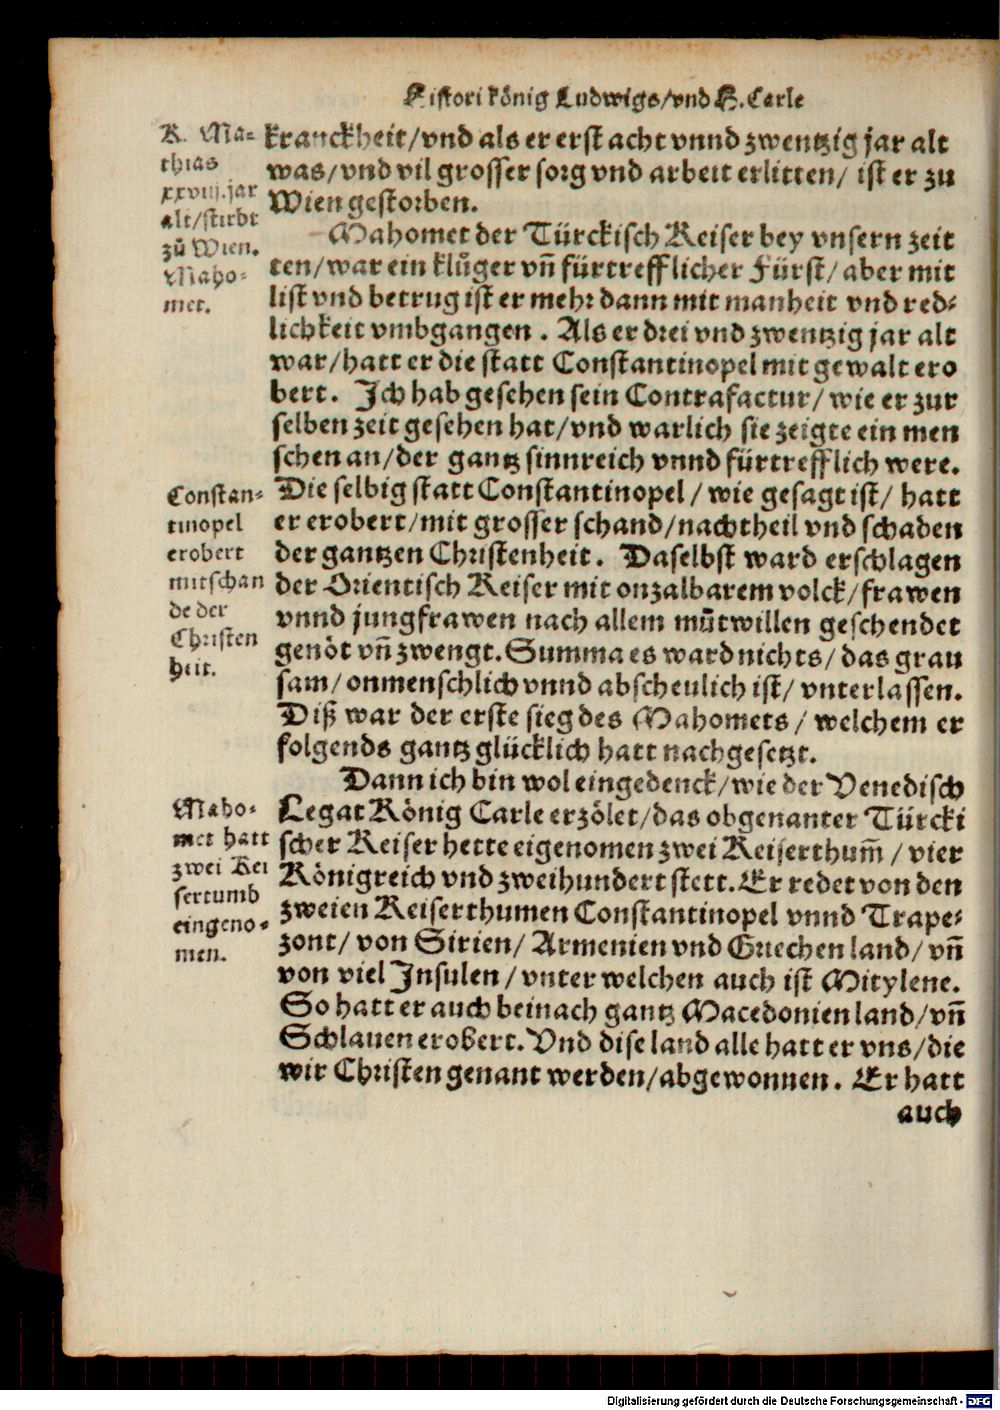 Histori kőnig Ludwigs/vnd H. Carle
K. Ma-
thias
xxviij.jar
alt/stirbt
zů Wien.
Maho-
met.
kranckheit/vnd als er erst acht vnnd zwentzig jar alt
was/vnd vil grosser sorg vnd arbeit erlitten/ ist er zu
Wien gestorben.
Mahomet der Türckisch Keiser bey vnsern zeit
ten/war ein klůger vñ fürtrefflicher Fürst/aber mit
list vnd betrug ist er mehr dann mit manheit vnd red-
lichkeit vmbgangen . Als er drei vnd zwentzig jar alt
war/hatt er die statt Constantinopel mit gewalt ero
bert. Ich hab gesehen sein Contrafactur/wie er zur
selben zeit gesehen hat/vnd warlich sie zeigte ein men
schen an/der gantz sinnreich vnnd fürtrefflich were.
Constan-
tinopel
erobert
mitschan
de der
Christen
heit.
Die selbig statt Constantinopel/wie gesagt ist/ hatt
er erobert/mit grosser schand/nachtheil vnd schaden
der gantzen Christenheit. Daselbst ward erschlagen
der Orientisch Keiser mit onzalbarem volck/frawen
vnnd jungfrawen nach allem můtwillen geschendet
genöt vñ zwengt. Summa es ward nichts/das grau
sam/onmenschlich vnnd abscheulich ist/vnterlassen.
Diß war der erste sieg des Mahomets/welchem er
folgends gantz glücklich hatt nachgesetzt.
Dann ich bin wol eingedenck/wie der Venedisch
Maho-
met hatt
zwei Kei
sertumb
eingeno-
men.
Legat König Carle erzölet/das obgenanter Türcki
scher Keiser hette eigenomen zwei Keiserthum̄/vier
Königreich vnd zweihundert stett. Er redet von den
zweien Keiserthumen Constantinopel vnnd Trape-
zont/von Sirien/Armenien vnd Griechen land/vñ
von viel Insulen/vnter welchen auch ist Mitylene.
So hatt er auch beinach gantz Macedonien land/vñ
Schlauen erobert. Vnd dise land alle hatt er vns/die
wir Christen genant werden/abgewonnen. Er hatt
auch
Digitalisierung gefördert durch die Deutsche Forschungsgemeinschaft - DFG